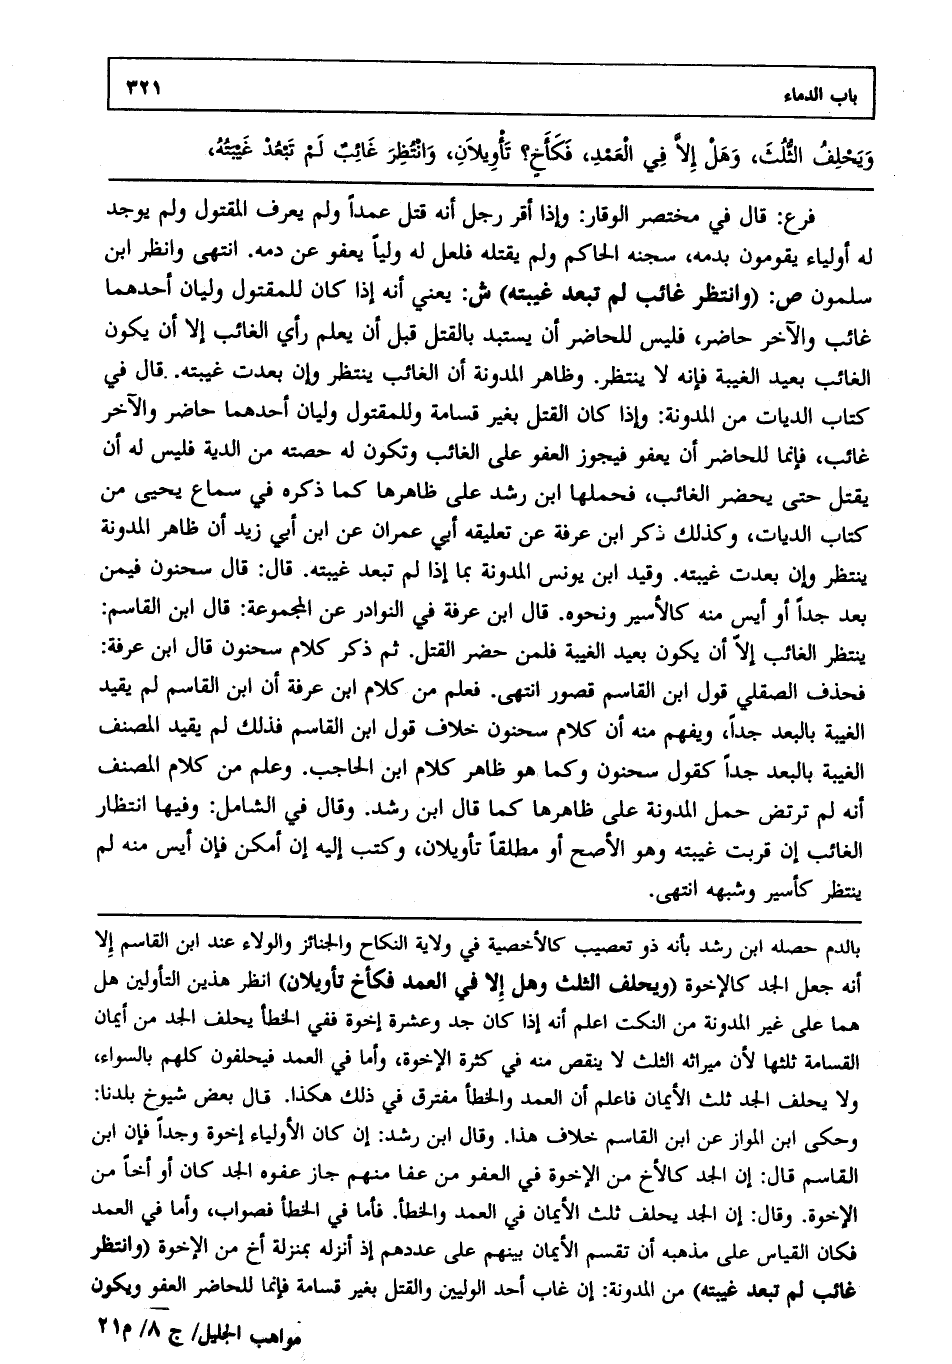 باب الدماء ٣٢١
وَيَحْلِفُ الثُّلُثَ، وَهَلْ إِلاَّ فِي الْعَمْدِ، فَكَأَخٍ؟ تَأْوِيلاَنِ، وَانْتُظِرَ غَائِبٌ لَمْ تَبْعُدْ غَيْبَتُهُ،
فرع: قال في مختصر الوقار: وإذا أقر رجل أنه قتل عمداً ولم يعرف المقتول ولم يوجد
له أولياء يقومون بدمه، سجنه الحاكم ولم يقتله فلعل له ولياً يعفو عن دمه. انتهى وانظر ابن
سلمون ص: (وانتظر غائب لم تبعد غيبته) ش: يعني أنه إذا كان للمقتول وليان أحدهما
غائب والآخر حاضر، فليس للحاضر أن يستبد بالقتل قبل أن يعلم رأي الغائب إلا أن يكون
الغائب بعيد الغيبة فإنه لا ينتظر. وظاهر المدونة أن الغائب ينتظر وإن بعدت غيبته. قال في
كتاب الديات من المدونة: وإذا كان القتل بغير قسامة وللمقتول وليان أحدهما حاضر والآخر
غائب، فإنما للحاضر أن يعفو فيجوز العفو على الغائب وتكون له حصته من الدية فليس له أن
يقتل حتى يحضر الغائب، فحملها ابن رشد على ظاهرها كما ذكره في سماع يحيى من
كتاب الديات، وكذلك ذكر ابن عرفة عن تعليقه أبي عمران عن ابن أبي زيد أن ظاهر المدونة
ينتظر وإن بعدت غيبته. وقيد ابن يونس المدونة بما إذا لم تبعد غيبته. قال: قال سحنون فيمن
بعد جداً أو أيس منه كالأسير ونحوه. قال ابن عرفة في النوادر عن المجموعة: قال ابن القاسم:
ينتظر الغائب إلاّ أن يكون بعيد الغيبة فلمن حضر القتل. ثم ذكر كلام سحنون قال ابن عرفة:
فحذف الصقلي قول ابن القاسم قصور انتهى. فعلم من كلام ابن عرفة أن ابن القاسم لم يقيد
الغيبة بالبعد جداً، ويفهم منه أن كلام سحنون خلاف قول ابن القاسم فذلك لم يقيد المصنف
الغيبة بالبعد جداً كقول سحنون وكما هو ظاهر كلام ابن الحاجب. وعلم من كلام المصنف
أنه لم ترتض حمل المدونة على ظاهرها كما قال ابن رشد. وقال في الشامل: وفيها انتظار
الغائب إن قربت غيبته وهو الأصح أو مطلقاً تأويلان، وكتب إليه إن أمكن فإن أيس منه لم
ينتظر كأسير وشبهه انتهى.
بالدم حصله ابن رشد بأنه ذو تعصيب كالأخصية في ولاية النكاح والجنائز والولاء عند ابن القاسم إلا
أنه جعل الجد كالإخوة (ويحلف الثلث وهل إلا في العمد فكأخ تأويلان) انظر هذين التأولين هل
هما على غير المدونة من النكت اعلم أنه إذا كان جد وعشرة إخوة ففي الخطأ يحلف الجد من أيمان
القسامة ثلثها لأن ميراثه الثلث لا ينقص منه في كثرة الإخوة، وأما في العمد فيحلفون كلهم بالسواء،
ولا يحلف الجد ثلث الأيمان فاعلم أن العمد والخطأ مفترق في ذلك هكذا. قال بعض شيوخ بلدنا:
وحكى ابن المواز عن ابن القاسم خلاف هذا. وقال ابن رشد: إن كان الأولياء إخوة وجداً فإن ابن
القاسم قال: إن الجد كالأخ من الإخوة في العفو من عفا منهم جاز عفوه الجد كان أو أخاً من
الإخوة. وقال: إن الجد يحلف ثلث الأيمان في العمد والخطأ. فأما في الخطأ فصواب، وأما في العمد
فكان القياس على مذهبه أن تقسم الأيمان بينهم على عددهم إذ أنزله بمنزلة أخ من الإخوة (وانتظر
غائب لم تبعد غيبته) من المدونة: إن غاب أحد الوليين والقتل بغير قسامة فإنما للحاضر العفو ويكون
مواهب الجليل/ ج ٨/ م ٢١